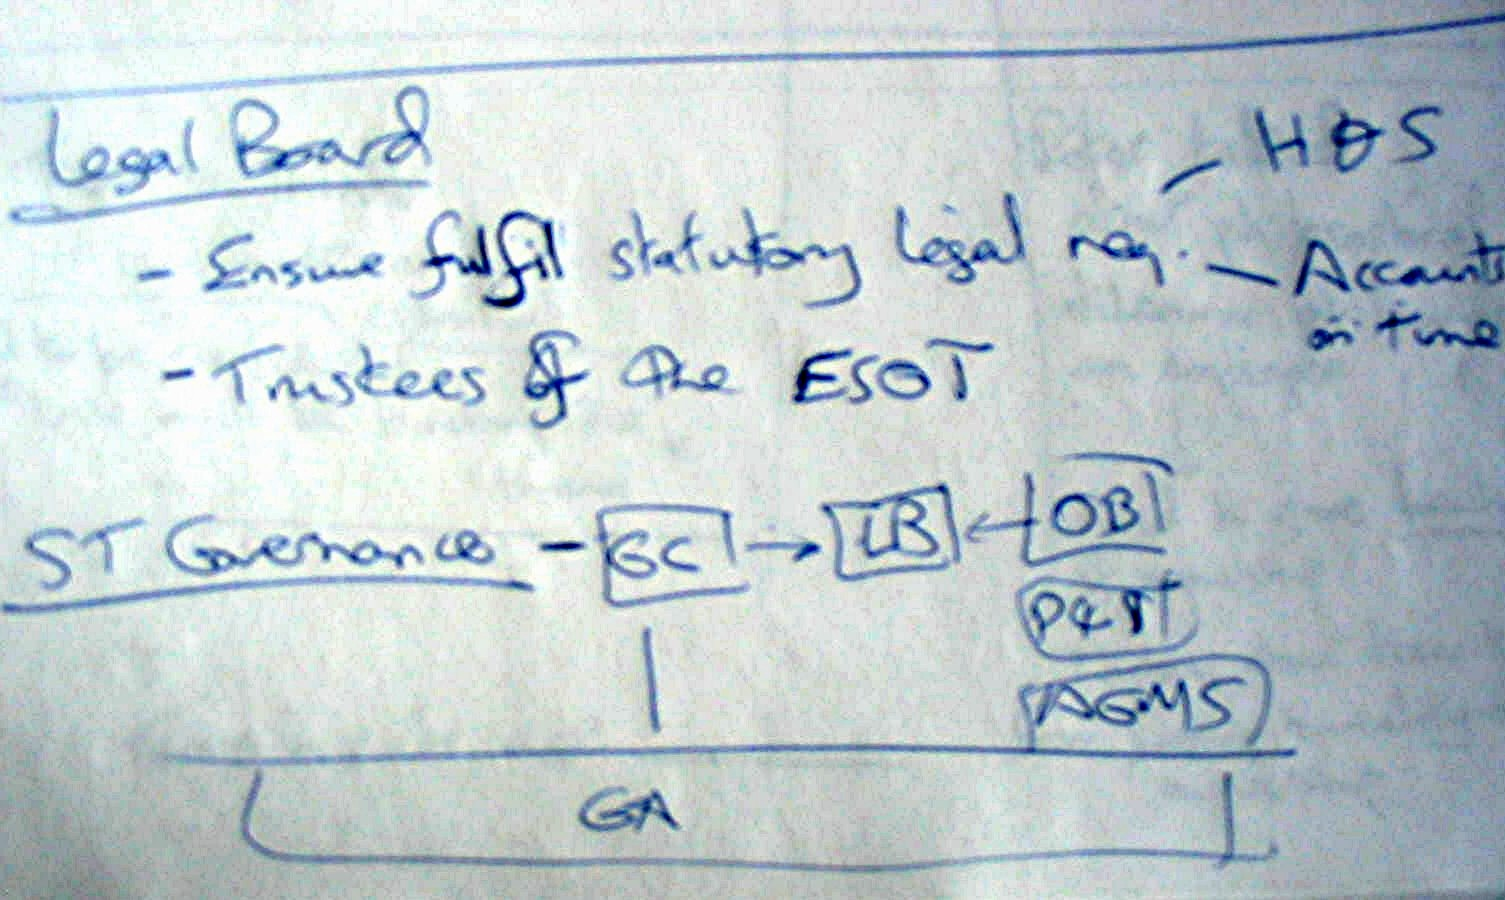 Legal Board
H&S
- Ensure fulfil statutory legal req.
Accounts
on time
- Trustees of the ESOT
ST Governance - GC → LB ← OB
AGMS
GA